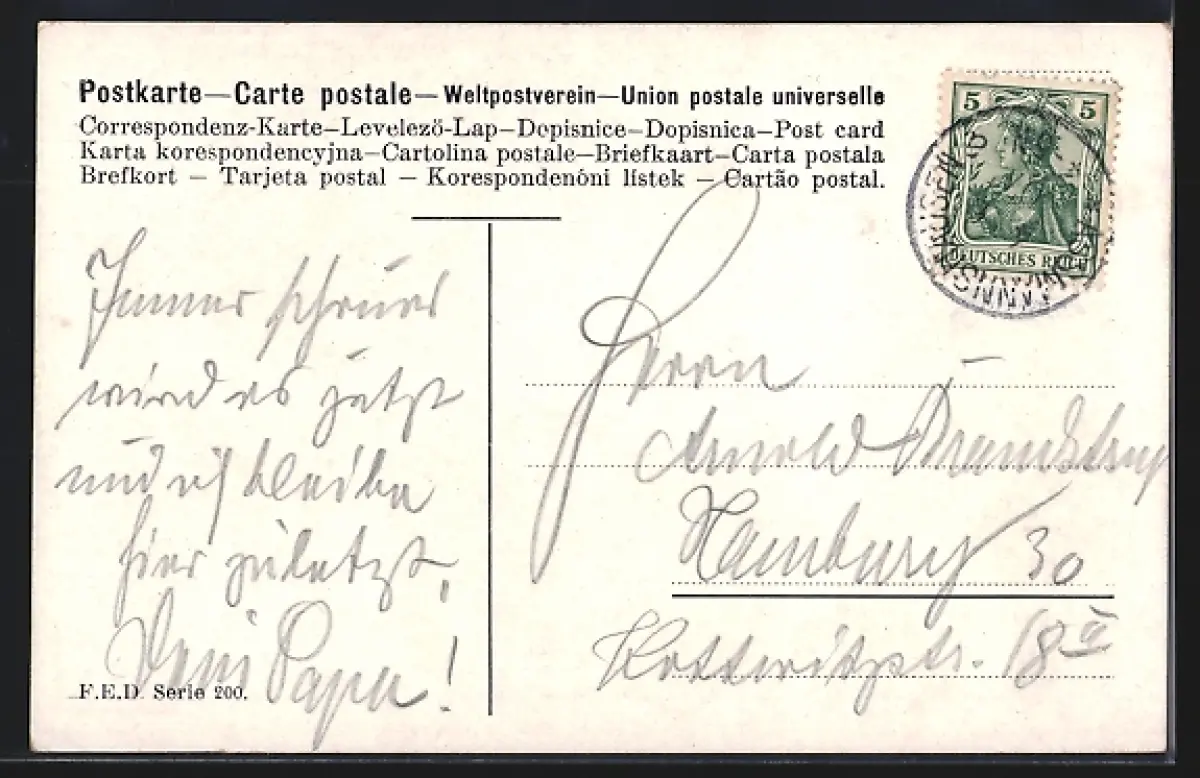 Postkarte—Carte postale—Weltpostverein—Union postale universelle
Correspondenz-Karte—Levelezö-Lap—Dopisnice—Dopisnica—Post card
Karta korespondencyjna—Cartolina postale—Briefkaart—Carta postala
Brefkort — Tarjeta postal — Korespondenóni lístek — Cartão postal.
5 5
DEUTSCHES REICH
Immer schöner
wird es jetzt
und ich bleibe
hier zuletzt.
Dein Papa!
F.E.D. Serie 200.
Herrn
Arnold
Hamburg 30
Kottwitzstr. 18 II